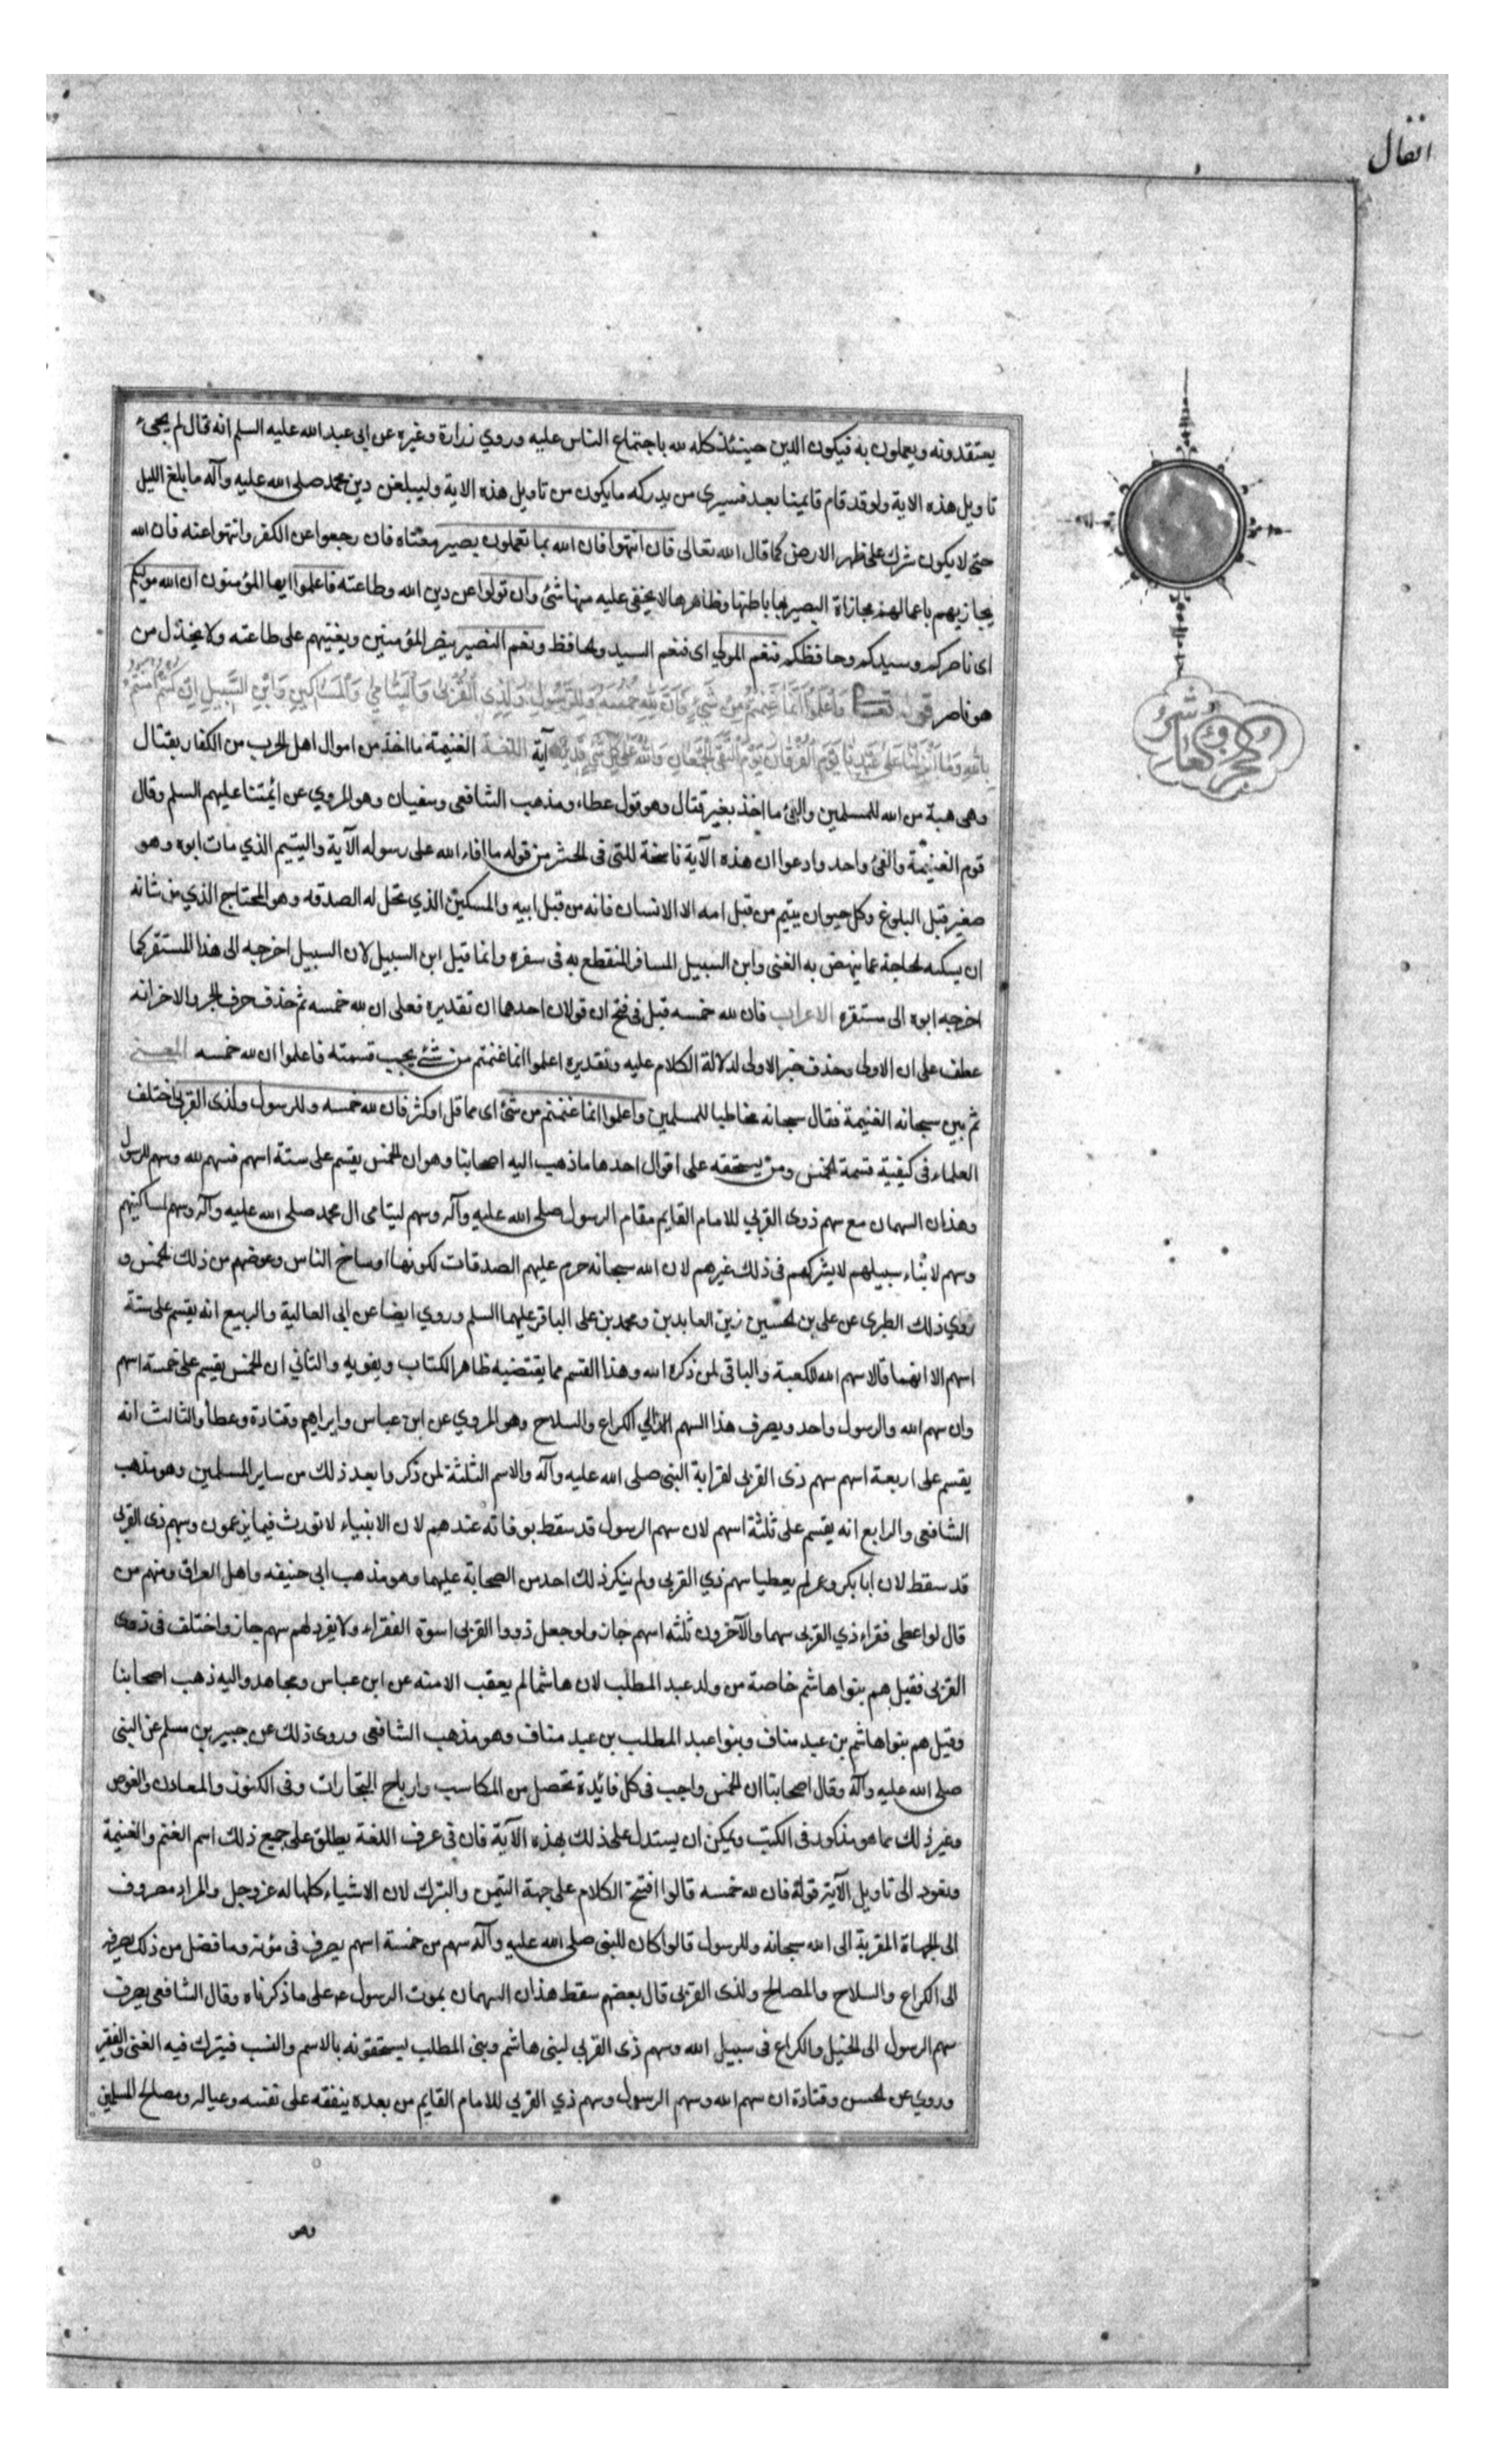 انفال
يعتقدونه ويعملون به فيكون الدين حينئذ كله لله باجتماع الناس عليه وروي زرارة وغيره عن ابى عبد الله عليه السلم انه قال لم يجئ
تاويل هذه الاية ولو قد قام قايمنا بعد فسيرى من يدركه ما يكون من تاويل هذه الاية وليبلغن دين محمد صلى الله عليه وآله ما بلغ الليل
حتى لا يكون شرك على ظهر الارض كما قال الله تعالى فان انتهوا فان الله بما تعملون بصير معناه فان رجعوا عن الكفر وانتهوا عنه فان الله
يجازيهم باعمالهم مجازاة البصير بها باطنها وظاهرها لا يخفى عليه منها شئ وان تولوا عن دين الله وطاعته فاعلموا ايها المؤمنون ان الله موليكم
اى ناصركم وسيدكم وحافظكم فنعم المولي اى فنعم السيد والحافظ ونعم النصير ينصر المؤمنين ويعينهم على طاعته ولا يخذل من
هو ناصر قوله تعالى وَاعْلَمُوا أَنَّمَا غَنِمْتُمْ مِنْ شَيْءٍ فَأَنَّ لِلَّهِ خُمُسَهُ وَلِلرَّسُولِ وَلِذِي الْقُرْبَى وَالْيَتَامَى وَالْمَسَاكِينِ وَابْنِ السَّبِيلِ إِنْ كُنْتُمْ آمَنْتُمْ
بِاللَّهِ وَمَا أَنْزَلْنَا عَلَى عَبْدِنَا يَوْمَ الْفُرْقَانِ يَوْمَ الْتَقَى الْجَمْعَانِ وَاللَّهُ عَلَى كُلِّ شَيْءٍ قَدِيرٌ آية اللغة الغنيمة ما اخذ من اموال اهل الحرب من الكفار بقتال
وهى هبة من الله للمسلمين والفئ ما اخذ بغير قتال وهو قول عطاء ومذهب الشافعى وسفيان وهو المروي عن ائمتنا عليهم السلم وقال
قوم الغنيمة والفئ واحد وادعوا ان هذه الآية ناسخة للتى فى الحشر من قوله ما افاء الله على رسوله الآية واليتيم الذي مات ابوه وهو
صغير قبل البلوغ وكل حيوان يتيم من قبل امه الا الانسان فانه من قبل ابيه والمسكين الذي تحل له الصدقه وهو المحتاج الذي من شانه
ان يسكنه الحاجة عما ينهض به الغنى وابن السبيل المسافر المنقطع به فى سفره وانما قيل ابن السبيل لان السبيل اخرجه الى هذا المستقر كما
اخرجه ابوه الى مستقره الاعراب فان لله خمسه قيل فى فتح ان قولان احدهما ان تقديره فعلى ان لله خمسه ثم حذف حرف الجر والاخر انه
عطف على ان الاولى وحذف خبر الاولى لدلالة الكلام عليه وتقديره اعلموا انما غنمتم من شئ يجب قسمته فاعلموا ان لله خمسه المعنى
ثم بين سبحانه الغنيمة فقال سبحانه مخاطبا للمسلمين واعلموا انما غنمتم من شئ اى مما قل او كثر فان لله خمسه وللرسول ولذى القربى اختلف
العلماء فى كيفية قسمة الخمس ومن يستحقه على اقوال احدها ما ذهب اليه اصحابنا وهو ان الخمس يقسم على ستة اسهم فسهم لله وسهم للرسول
وهذان السهمان مع سهم ذوى القربي للامام القايم مقام الرسول صلى الله عليه وآله وسهم ليتامى ال محمد صلى الله عليه وآله وسهم لمساكينهم
وسهم لابناء سبيلهم لا يشركهم فى ذلك غيرهم لان الله سبحانه حرم عليهم الصدقات لكونها اوساخ الناس وعوضهم من ذلك الخمس و
روي ذلك الطبرى عن على بن الحسين زين العابدين ومحمد بن على الباقر عليهما السلم وروي ايضا عن ابى العالية والربيع انه يقسم على ستة
اسهم الا انهما قالا سهم الله للكعبة والباقى لمن ذكره الله وهذا القسم مما يقتضيه ظاهر الكتاب ويقويه والثاني ان الخمس يقسم على خمسة اسهم
وان سهم الله والرسول واحد ويصرف هذا السهم الى الكراع والسلاح وهو المروي عن ابن عباس وابراهيم وقتادة وعطا والثالث انه
يقسم على اربعة اسهم سهم ذى القربى لقرابة النبى صلى الله عليه وآله والاسهم الثلثة لمن ذكر وا بعد ذلك من ساير المسلمين وهو مذهب
الشافعى والرابع انه يقسم على ثلثة اسهم لان سهم الرسول قد سقط بوفاته عندهم لان الانبياء لا تورث فيما يزعمون وسهم ذى القربى
قد سقط لان ابا بكر وعمر لم يعطيا سهم ذي القربى ولم ينكر ذلك احد من الصحابة عليهما وهو مذهب ابى حنيفه واهل العراق ومنهم من
قال لو اعطى فقراء ذي القربى سهما والآخرون ثلثه اسهم جاز ولو جعل ذووا القربى اسوة الفقراء ولا يفرد لهم سهم جاز واختلف فى ذوى
القربى فقيل هم بنوا هاشم خاصة من ولد عبد المطلب لان هاشما لم يعقب الا منه عن ابن عباس ومجاهد واليه ذهب اصحابنا
وقيل هم بنوا هاشم بن عبد مناف وبنوا عبد المطلب بن عبد مناف وهو مذهب الشافعى وروى ذلك عن جبير بن مسلم عن النبى
صلى الله عليه وآله وقال اصحابنا ان الخمس واجب فى كل فائدة تحصل من المكاسب وارباح التجارات وفى الكنوز والمعادن والغوص
وغير ذلك مما هو مذكور فى الكتب ويمكن ان يستدل على ذلك بهذه الآية فان فى عرف اللغة يطلق على جميع ذلك اسم الغنم والغنيمة
ونعود الى تاويل الآية قوله فان لله خمسه قالوا افتتح الكلام على جهة التيمن والتبرك لان الاشياء كلها له عز وجل والمراد مصروف
الى الجهاة المقربة الى الله سبحانه وللرسول قالوا كان للنبى صلى الله عليه وآله سهم من خمسة اسهم يصرف فى مؤنته وما فضل من ذلك يصرفه
الى الكراع والسلاح والمصالح ولذى القربى قال بعضهم سقط هذان السهمان بموت الرسول ص على ما ذكرناه وقال الشافعى يصرف
سهم الرسول الى الخيل والكراع فى سبيل الله وسهم ذى القربي لبنى هاشم وبنى المطلب يستحقونه بالاسم والنسب فيترك فيه الغنى والفقير
وروي عن الحسن وقتادة ان سهم الله وسهم الرسول وسهم ذي القربي للامام القايم من بعده ينفقه على نفسه وعياله ومصالح المسلمين
وهو